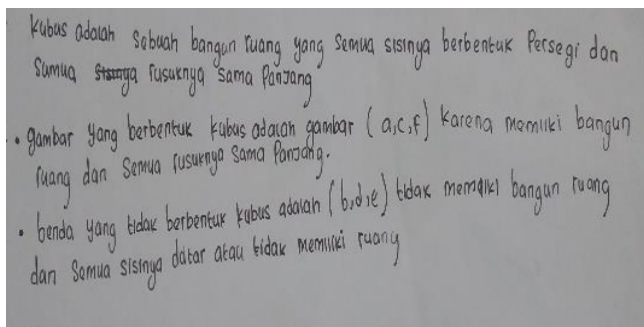 Kubus adalah sebuah bangun ruang yang semua sisinya berbentuk Persegi dan
Semua rusuknya sama Panjang
• gambar yang berbentuk kubus adalah gambar (a,c,f) karena memiliki bangun
ruang dan semua rusuknya sama Panjang.
• benda yang tidak berbentuk kubus adalah (b,d,e) tidak memiliki bangun ruang
dan semua sisinya datar atau tidak memiliki ruang